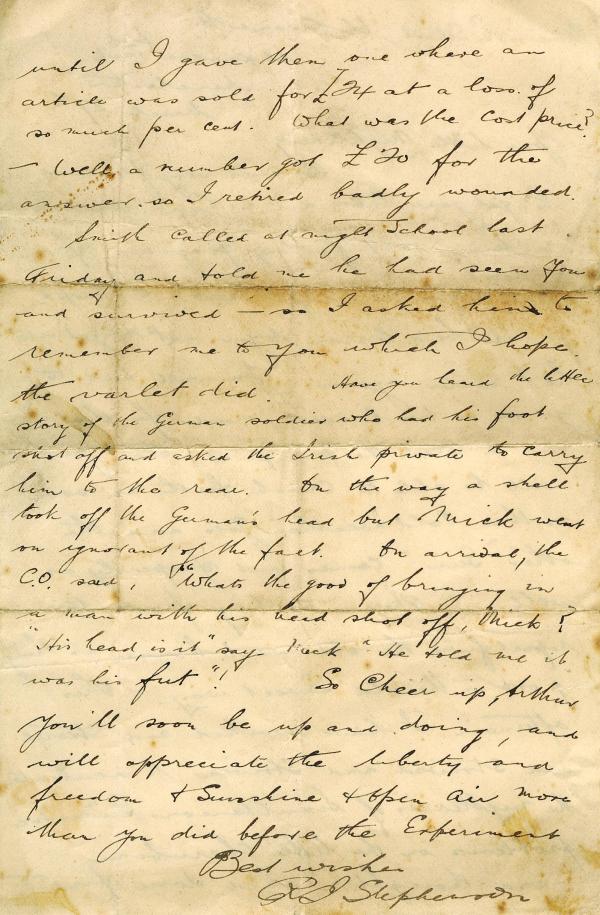 until I gave them one where an
article was sold for £24 at a loss of
so much per cent. What was the Cost price?
— Well, a number got £70 for the
answer so I retired badly wounded.
Smith called at night School last
Friday and told me he had seen you
and survived — so I asked him to
remember me to you which I hope
the varlet did. Have you heard the little
story of the German soldier who had his foot
shot off and asked the Irish private to carry
him to the rear. On the way a shell
took off the German's head but Mick went
on ignorant of the fact. On arrival, the
C.O. said, "Whats the good of bringing in
a man with his head shot off, Mick?
"His head, is it" say Mick "He told me it
was his fut"! So Cheer up, Arthur
You'll soon be up and doing, and
will appreciate the liberty and
freedom & Sunshine & open air more
than you did before the Experiment
Best wishes
Stephenson